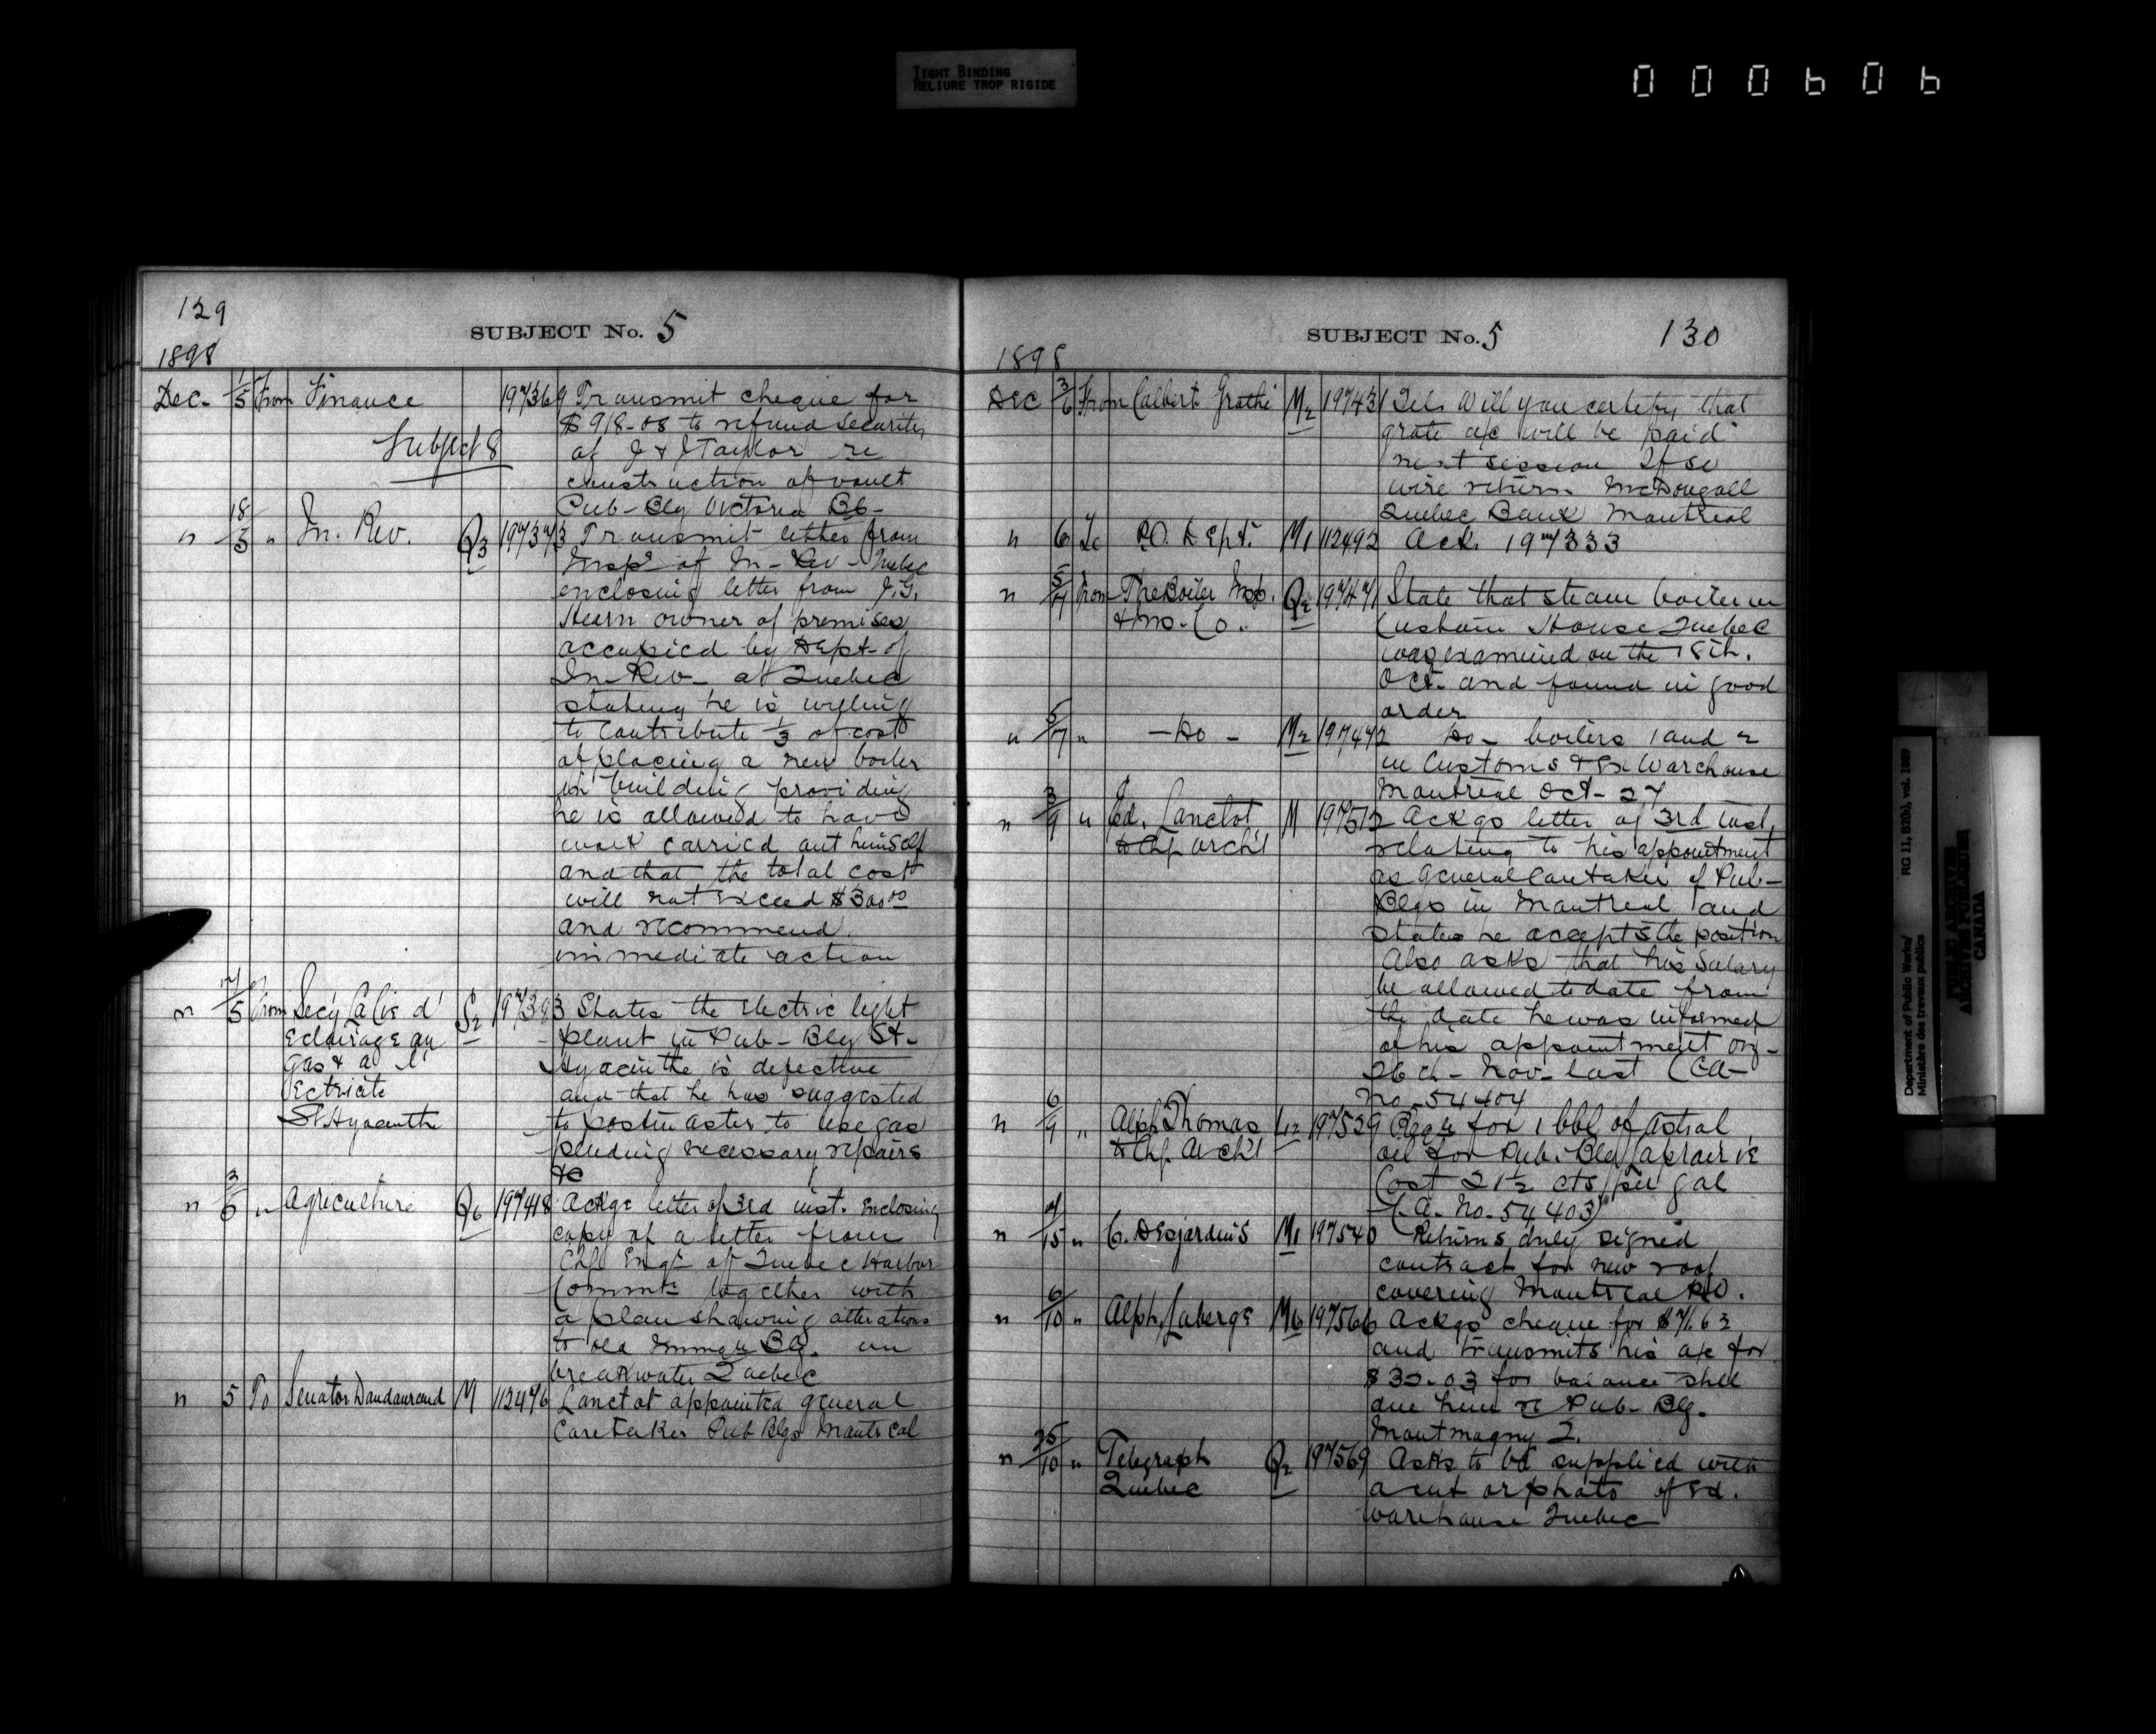 TIGHT BINDING
RELIURE TROP RIGIDE
000606
129
SUBJECT No. 5
1898
Dec. 1/5 From Finance 197369 Transmit cheque for
$918-08 to refund Security
Subject 8 of J & J Taylor re
construction of vault
Pub-Blg Victoria B6-
" 18/5 " In. Rev. Q3 197373 Transmit letter from
Insp of In-Rev-Quebec
enclosing letter from J.G.
Hearn owner of premises
occupied by Dept-of
In-Rev- at Quebec
stating he is wyling
to contribute 1/3 of cost
of placing a new boiler
in building providing
he is allowed to have
work carried out himself
and that the total cost
will not exceed $300.00
and recommend
immediate action
" 7/5 From Secy La Cie d' S2 197393 States the electric light
Eclairage au plant in Pub-Blg St-
Gas & a l' Hyacinthe is defective
Ectricite and that he has suggested
St. Hyacinthe to postmaster to use gas
pending necessary repairs
&c
" 3/6 " Agriculture Q6 197418 Ackgs letter of 3rd inst. Enclosing
copy of a letter from
Chf Engr of Quebec Harbor
Commrs together with
a plan showing alterations
to old Immgn Blg. on
breakwater Quebec
" 5 To Senator Dandaurand M 112476 Lanctot appointed general
Caretaker Pub Blgs Montreal
SUBJECT No. 5 130
1898
Dec 3/6 From Calbert Grothi M2 197431 Tel. Will you certify that
grate a/c will be paid
next session If so
wire return McDougall
Quebec Bank Montreal
" 6 To P.O. Dept. M1 112492 Ack. 197333
" 5/7 From The Boiler Insp. Q2 197471 State that steam boiler in
& Ins. Co. Custom House Quebec
was examined on the 18th.
Oct. and found in good
order
" 5/7 " -Do- M2 197472 Do- boilers 1 and 2
in Customs & Ex Warehouse
Montreal Oct-27
" 3/9 " Ed. Lanctot M 197512 Ackgs letter of 3rd inst,
to Chf Arch't relating to his appointment
as General Caretaker of Pub-
Blgs in Montreal and
states he accepts the position
Also asks that his Salary
be allowed to date from
the date he was informed
of his appointment
26th-Nov-last (CA-
No. 54404
" 6/9 " Alph Thomas L12 197529 Reqn for 1 bbl of Astral
to Chf. Arch't oil for Pub. Blg Laprairie
Cost 21½ cts per gal
(C.A. No. 54403)
" 7/15 " C. Desjardins M1 197540 Returns duly signed
contract for new roof
covering Montreal P.O.
" 6/10 " Alph. Laberge M6 197566 Ackgs cheque for $71.63
and transmits his a/c for
$30.03 for balance still
due him re Pub-Blg.
Montmagny Q.
" 25/10 " Telegraph Q2 197569 Asks to be supplied with
Quebec a cut or photo of Ex.
warehouse Quebec
Department of Public Works/
Ministère des travaux publics
RG 11, B2(b), vol. 1889
PUBLIC ARCHIVES
ARCHIVES PUBLIQUES
CANADA